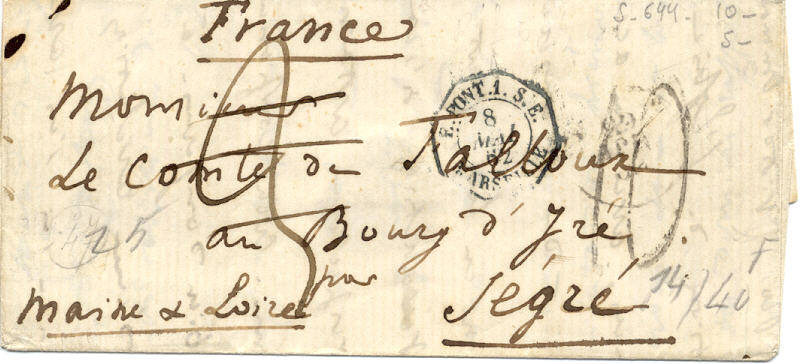 S-644- 10-
5-
France
Monsieur
Le Comte de Falloux
au Bourg d'Iré
par
Maine & Loire Ségré
E. PONT. 1. S. E.
8
MAI
MARSEILLE
10
25
14/40
F